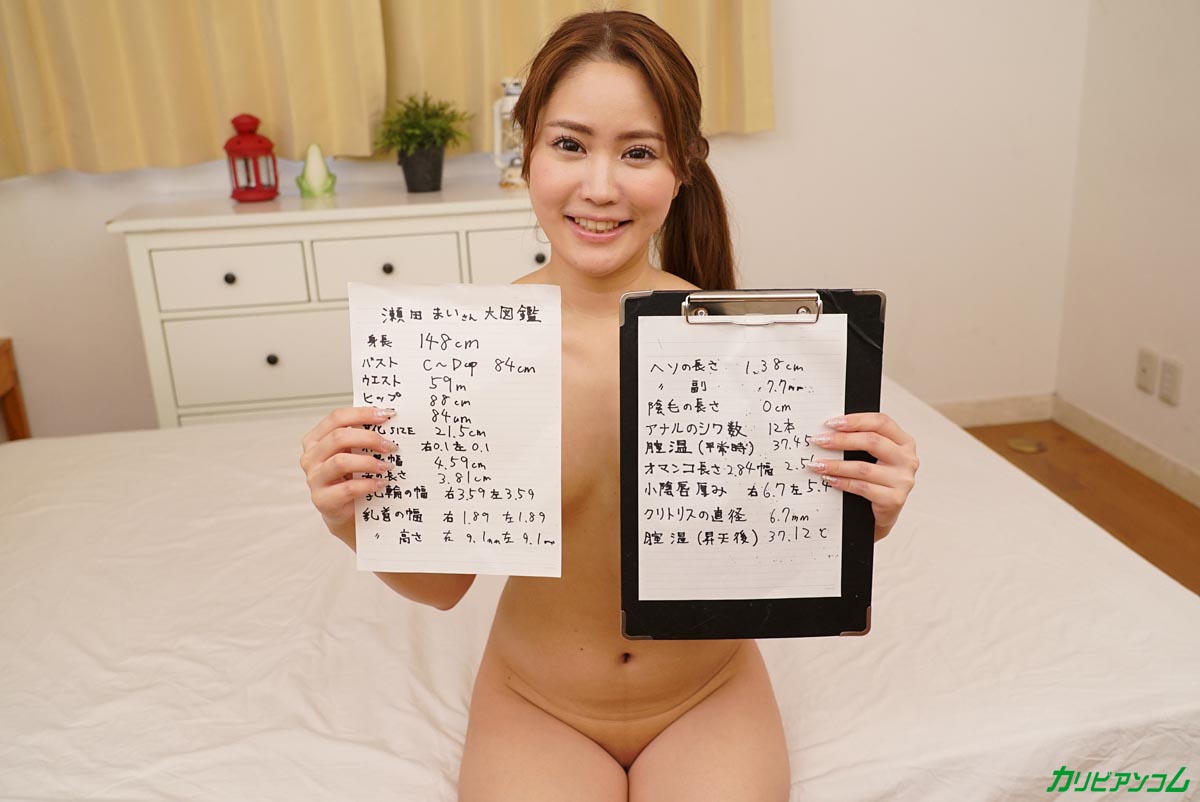 瀬田まいさん大図鑑
身長 148cm
バスト C～Dcup 84cm
ウエスト 59m
ヒップ 88cm
84cm
靴SIZE 21.5cm
右0.1左0.1
幅 4.59cm
の長さ 3.81cm
乳輪の幅 右3.59左3.59
乳首の幅 右1.89 左1.89
〃 高さ 右9.1mm左9.1mm
ヘソの長さ 1.38cm
〃 副 7.7mm
陰毛の長さ 0cm
アナルのシワ数 12本
膣温(平常時) 37.45
オマンコ長さ2.84幅 2.5
小陰唇厚み 右6.7左5.4
クリトリスの直径 6.7mm
膣温(昇天後) 37.12℃
カリビアンコム